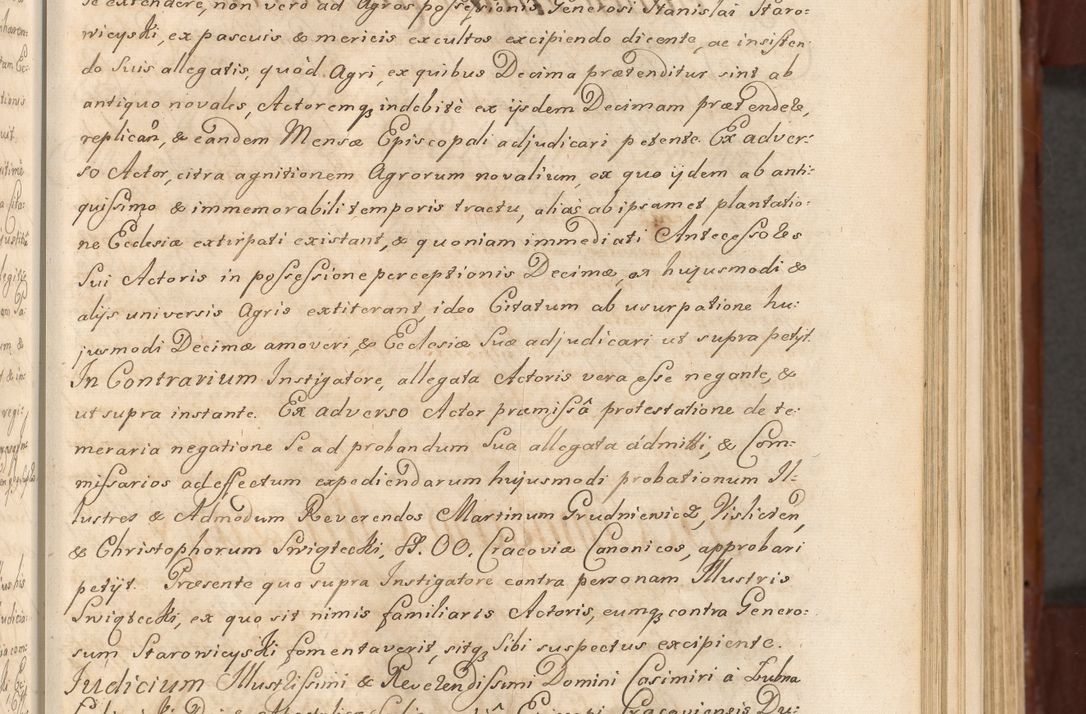 se extendere, non verò ad Agros possessionis Generosi Stanislai Staro-
wieyski, ex pascuis & mericis excultos excipiendo dicente, ac insisten-
do suis allegatis, quòd Agri, ex quibus Decima prætenditur sint ab
antiquo novales, Actoremq indebitè ex ijsdem Decimam prætendere,
replicañ, & eandem Mensæ Episcopali adjudicari petente. Ex adver:
so Actor, citra agnitionem Agrorum novalium, ex quo ijdem ab anti:
quissimo & immemorabili temporis tractu, alias ab ipsamet plantatio:
ne Ecclesiæ extirpati existant, & quoniam immediati Antecessores
sui Actoris in possessione perceptionis Decimæ, ex hujusmodi &
alijs universis Agris extiterant, ideo Citatum ab usurpatione hu:
jusmodi Decimæ amoveri, & Ecclesiæ suæ adjudicari ut supra petijt.
In Contrarium Instigatore, allegata Actoris vera esse negante, &
ut supra instante. Ex adverso Actor præmissâ protestatione de te:
meraria negatione se ad probandum sua allegata admitti, & Com:
missarios ad effectum expediendarum hujusmodi probationum Il-
lustres & Admodum Reverendos Martinum Grudniewicz, Vislicien,
& Christophorum Swigtecki, SS. OO. Cracoviæ Canonicos, approbari
petijt. Præsente quo supra Instigatore contra personam Illustris
Swigtecki, ex quo sit nimis familiaris Actoris, eumq contra Genero:
sum Starowieyski fomentaverit, sitq sibi suspectus excipiente.
Judicium Illustrissimi & Reverendissimi Domini Casimiri à Lubna
Episcopi Cracoviensis Du: